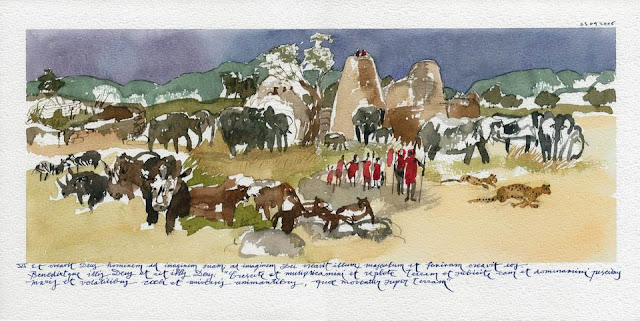 03 09 2006
et creavit Deus hominem ad imaginem suam ad imaginem Dei creavit illum masculum et feminam creavit eos
Benedixitque illis Deus et ait illis Deus "Crescite et multiplicamini et replete terram et subicite eam et dominamini piscibus
maris et volatilibus caeli et universis animantibus, quae moventur super terram